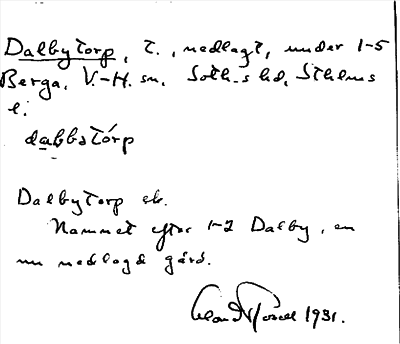 Dalbytorp, t., nedlagt, under 1-5
Berga, V.-H. sn, Soth-s hd, Sthlms
l.
dabbatórp
Dalbytorp ek.
Namnet efter 1-2 Dalby, en
nu nedlagd gård.
1931.